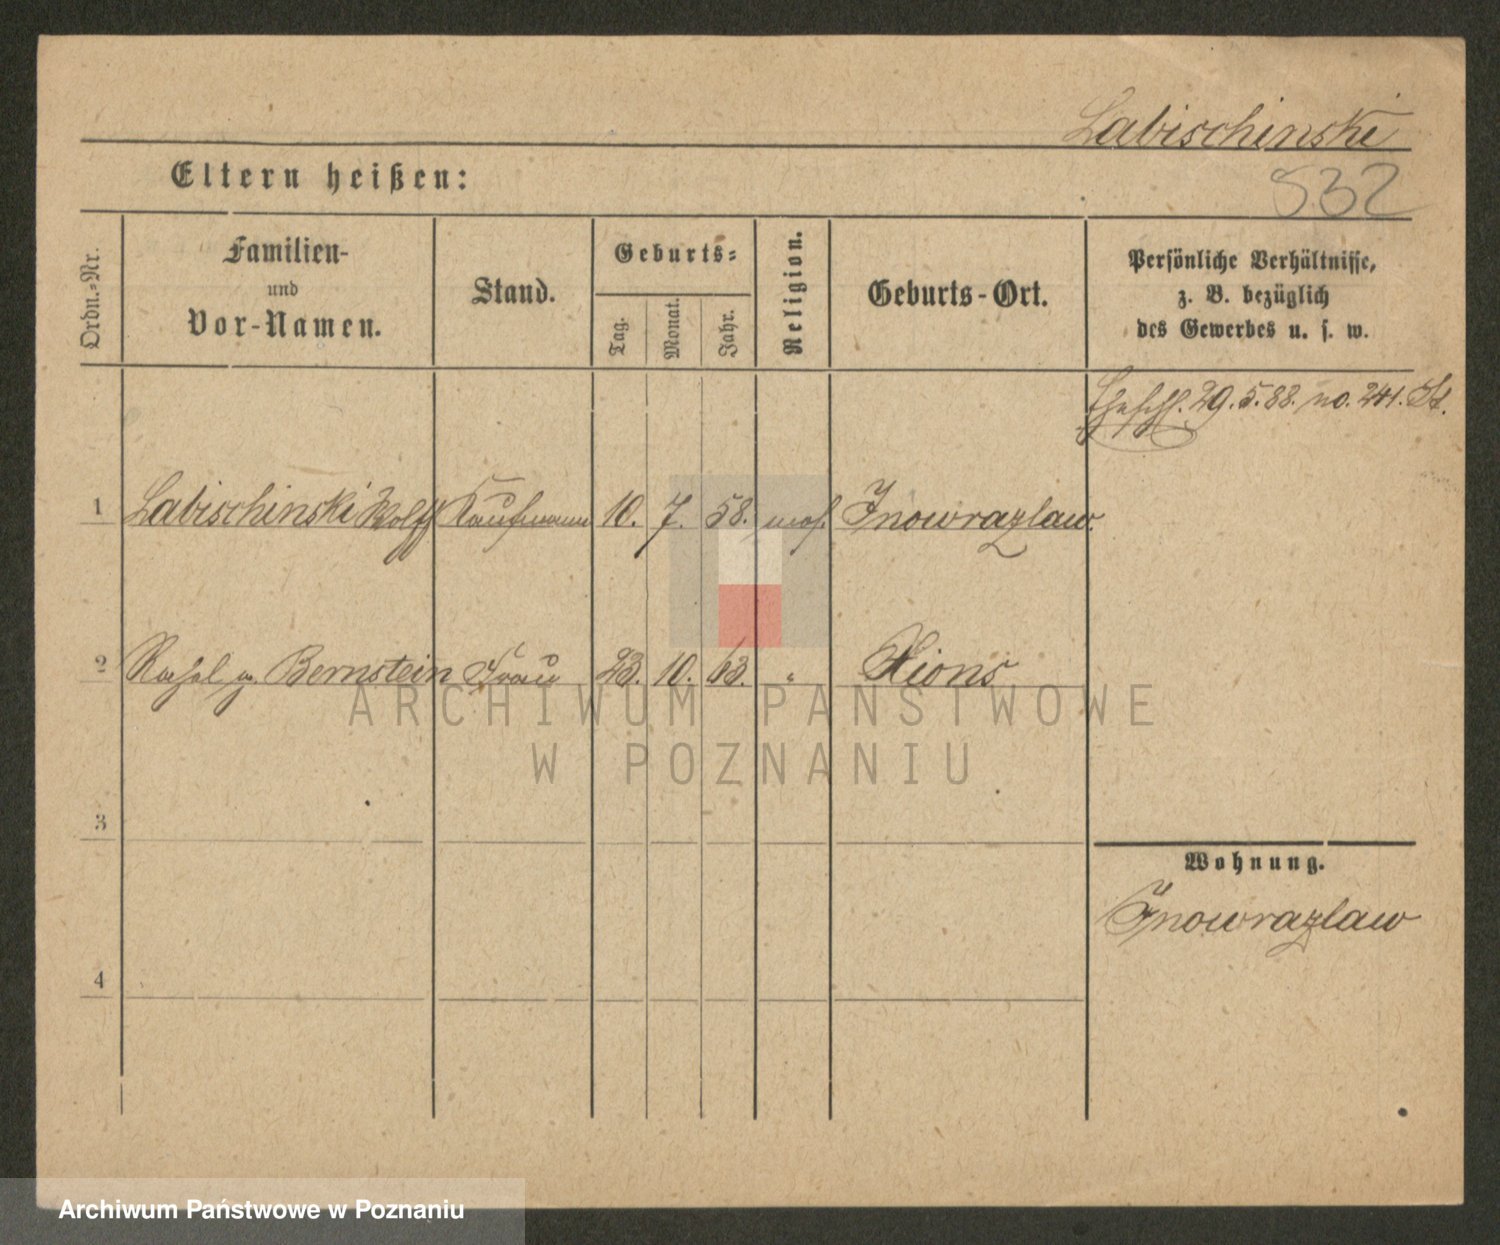 Labischinski
532
Eltern heißen:
Ordn.-Nr.
Familien- und Vor-Namen.
Stand.
Geburts-
Tag.
Monat.
Jahr.
Religion.
Geburts-Ort.
Persönliche Verhältnisse,
z. B. bezüglich
des Gewerbes u. s. w.
Eheschl. 29.5.88. no. 241. St.
1 Labischinski Wolff Kaufmann 10. 7. 58. mos. Inowrazlaw.
2 Rahel g. Bernstein Frau 23. 10. 63. " Xions
ARCHIWUM PAŃSTWOWE
W POZNANIU
3
Wohnung.
Inowrazlaw
4
Archiwum Państwowe w Poznaniu